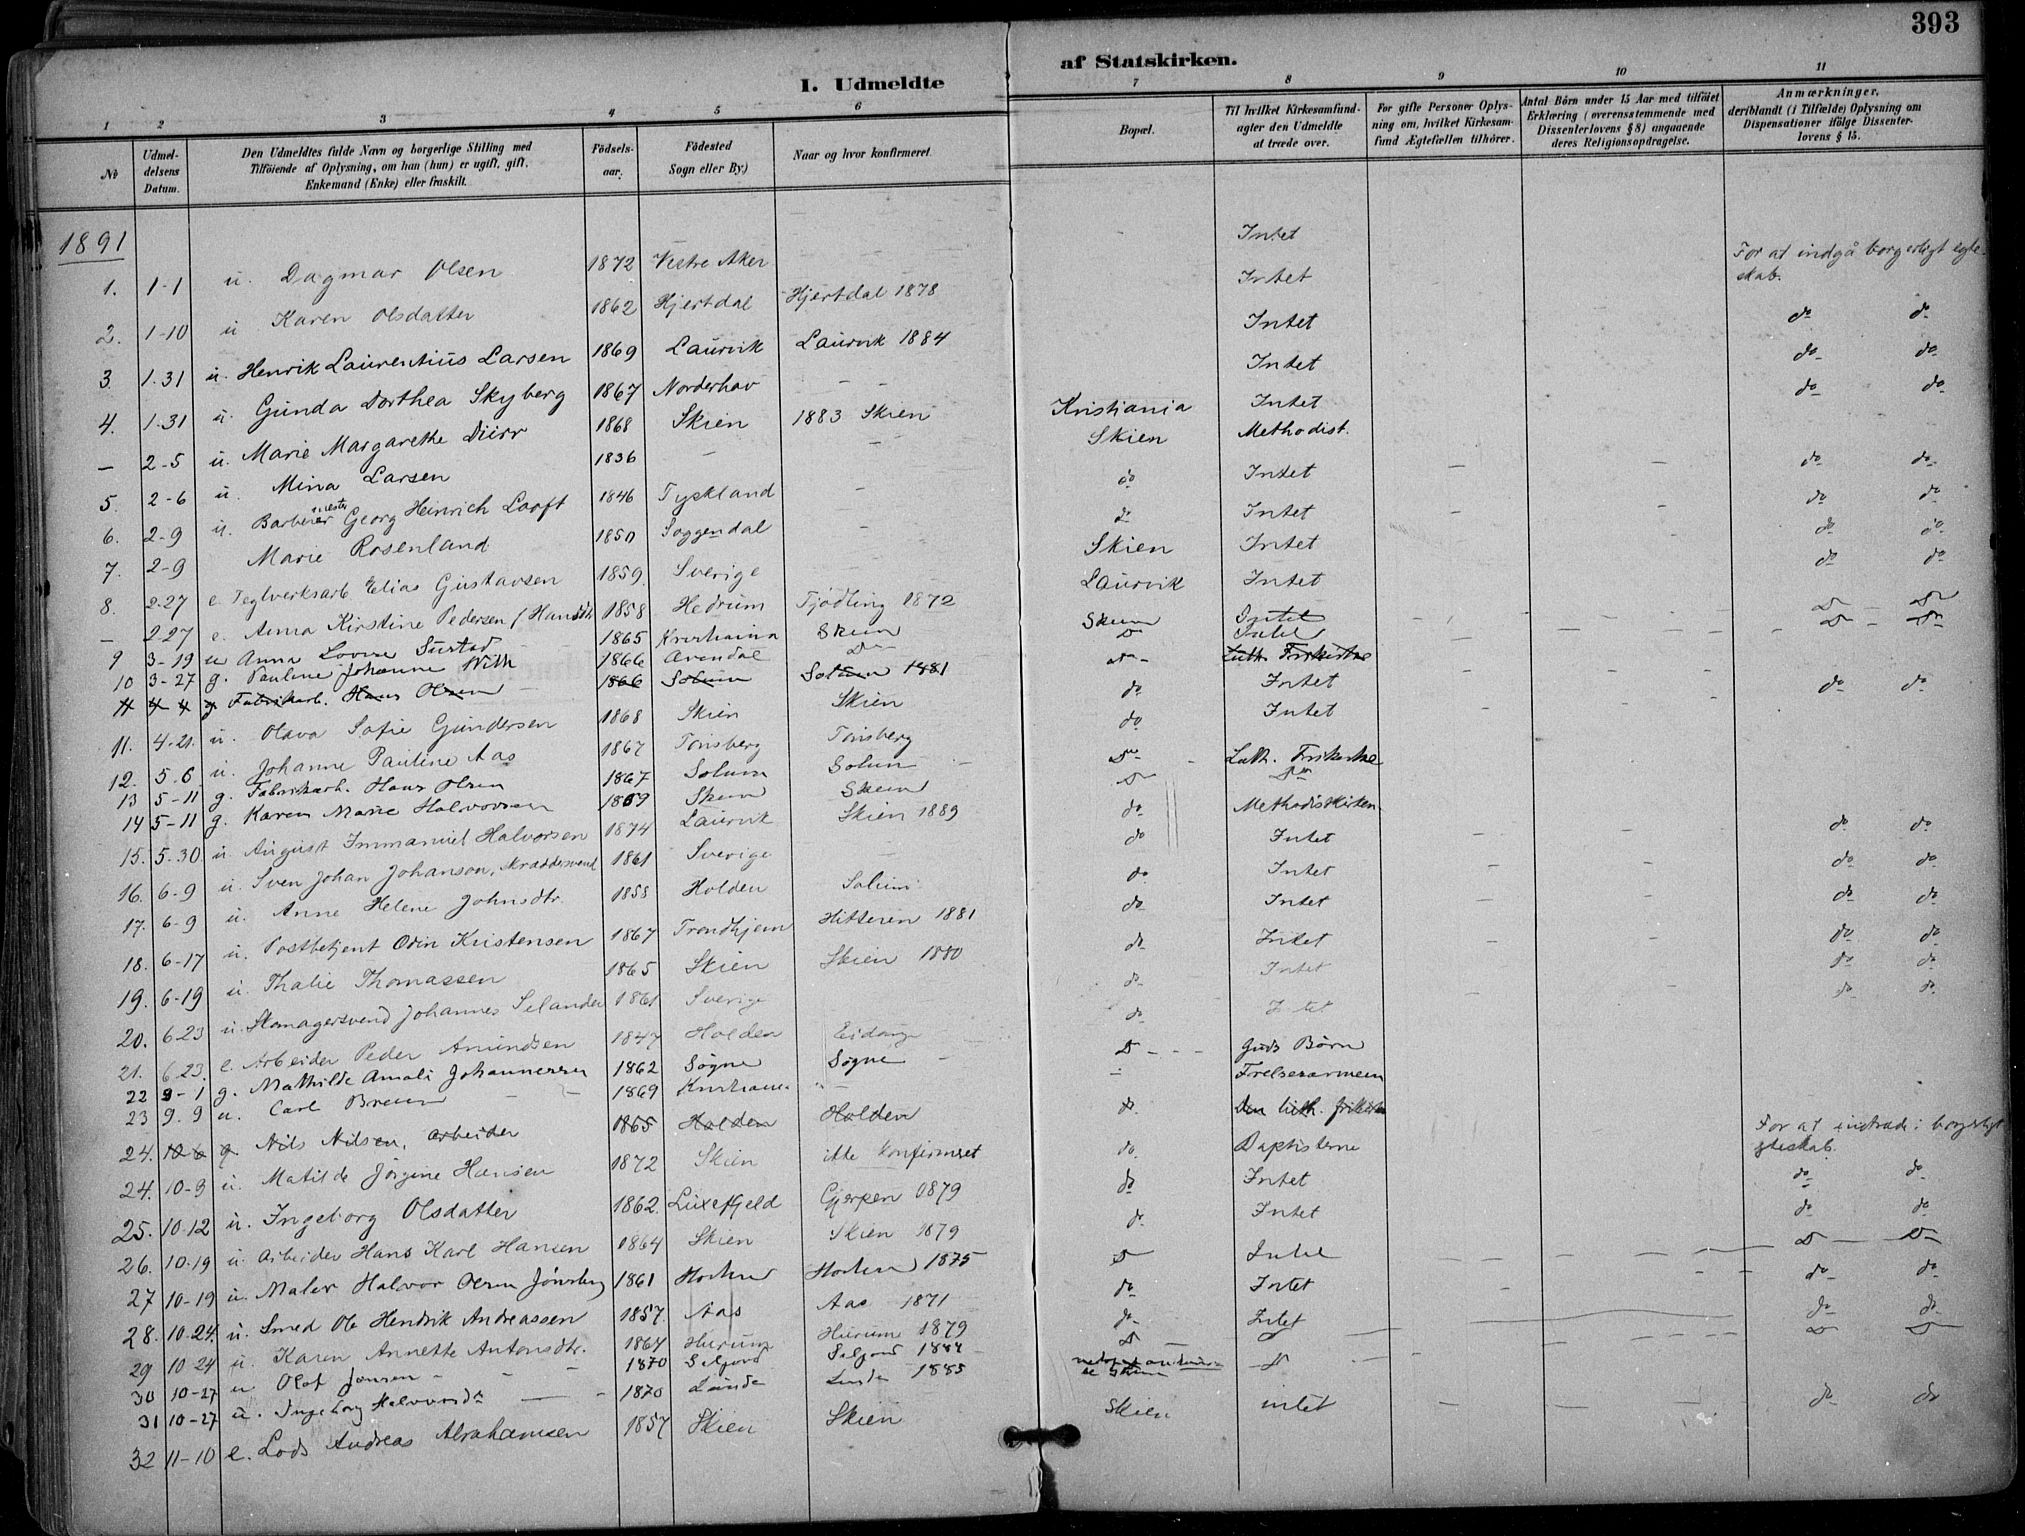 393
I. Udmeldte af Statskirken.
1 2 3 4 5 6 7 8 9 10 11
No
Udmeldelsens Datum.
Den Udmeldtes fulde Navn og borgerlige Stilling med
Tilföiende af Oplysning, om han (hun) er ugift, gift,
Enkemand (Enke) eller fraskilt.
Födselsaar.
Födested
Sogn eller By.)
Naar og hvor konfirmeret.
Bopæl.
Til hvilket Kirkesamfund-
agter den Udmeldte
at træde over.
For gifte Personer Oplys-
ning om, hvilket Kirkesam-
fund Ægtefællen tilhörer.
Antal Börn under 15 Aar med tilföiet
Erklæring (overensstemmende med
Dissenterlovens § 8) angaaende
deres Religionsopdragelse.
Anmærkninger,
deriblandt (i Tilfælde) Oplysning om
Dispensationer ifölge Dissenter-
lovens § 15.
1891
1. 1-1 u. Dagmar Olsen 1872 Vestre Aker Intet For at indgå borgerligt egte-
skab.
2. 1-10 u Karen Olsdatter 1862 Hjertdal Hjertdal 1878 Intet do do
3. 1-31 u. Henrik Laurentius Larsen 1869 Laurvik Laurvik 1884 Intet do do
4. 1-31 u. Gunda Dorthea Skyberg 1867 Norderhov - - Intet do do
— 2-5 u. Marie Margarethe Dürr 1868 Skien 1883 Skien Kristiania Intet
5. 2-6 u. Mina Larsen 1836 - - Skien Methodist.
6. 2-9 u. Barbermester Georg Heinrich Laaft 1846 Tyskland - do Intet do do
7. 2-9 Marie Rosenland 1850 Soggendal - do Intet do do
8. 2-27 e. Teglverksarb. Elias Gustavsen 1859. Sverige Skien Intet do do
— 2-27 e. Anna Kirstine Pedersen f. Hansdtr 1858 Hedrum Tjødling 1872 Laurvik Intet do do
9 3-19 u Anna Lovise Sustad 1865 Kristiania Skien Skien Intet Do Do
10 3-27 g. Pauline Johanne With 1866 Arendal Do Do Intet Do Do
11 4-4 g Fabrikarb. Hans Olsen 1866 Solum Solum 1881 Do Luth. Frikirke
11. 4-21. u. Olava Sofie Gundersen 1868 Skien Skien do Intet do do
12. 5-6 u. Johanne Pauline Aas 1867 Tönsberg Tönsberg do Intet
13 5-11 g. Fabrikarb. Hans Olsen 1867 Solum Solum Do Luth. Frikirke
14 5-11 g. Karen Marie Halvorsen 1869 Skien Skien Do Do
15. 5-30 u August Immanuel Halvorsen 1874 Laurvik Skien 1889 do Methodistkirken
16. 6-9 u. Sven Johan Johanson, Skræddersvend 1861 Sverige - do Intet do do
17. 6-9 u. Anne Helene Johnsdtr. 1858 Holden Solum do Intet do do
18. 6-17 u. Postbetjent Odin Kristensen 1867 Trondhjem Hitteren 1881 do Intet do do
19. 6-19 u. Thalie Thomassen 1865 Skien Skien 1880 do Intet do do
20. 6-23 u. Skomagersvend Johannes Selander 1861 Sverige do Intet do do
21. 6-23. e. Arbeider Peder Amundsen 1847 Holden Eidanger do Intet do do
22 9-1 g. Mathilde Amalie Johannessen 1862 Søgne Søgne Do Guds Børn
23 9-9 u. Carl Breien 1869 Kristiania - Frelsesarmeen
24. 10-6 g. Nils Nilsen, arbeider 1865 Holden Holden do Den luth. frikirke
24. 10-9 u. Matilde Jørgine Hansen 1872 Skien ikke konfirmeret do. Baptisterne For at indtræde i borgerligt
egteskab.
25. 10-12 u. Ingeborg Olsdatter 1862. Luxefjeld Gjerpen 1879 do Intet do do
26. 10-19 u. Arbeider Hans Karl Hansen 1864 Skien Skien 1879 do Intet do do
27 10-19 u. Maler Halvor Olsen 1861 Horten Horten 1875 Do Intet Do Do
28. 10-24. u. Smed Ole Hendrik Andreassen 1857. Aas Aas 1871 do Intet do do
29 10-24 u. Karen Annette Antonsdtr. 1864 Hurum Hurum 1879 do Intet do do
30 10-27 u Olaf Jonsen 1870 Seljord Seljord 1884 Do Do Do Do
31 10-27 u. Ingeborg Halvorsdtr 1870 Lunde Lunde 1885 Skien Do
32 11-10 e. Lods Andreas Abrahamsen 1857 Skien Skien Skien intet do do